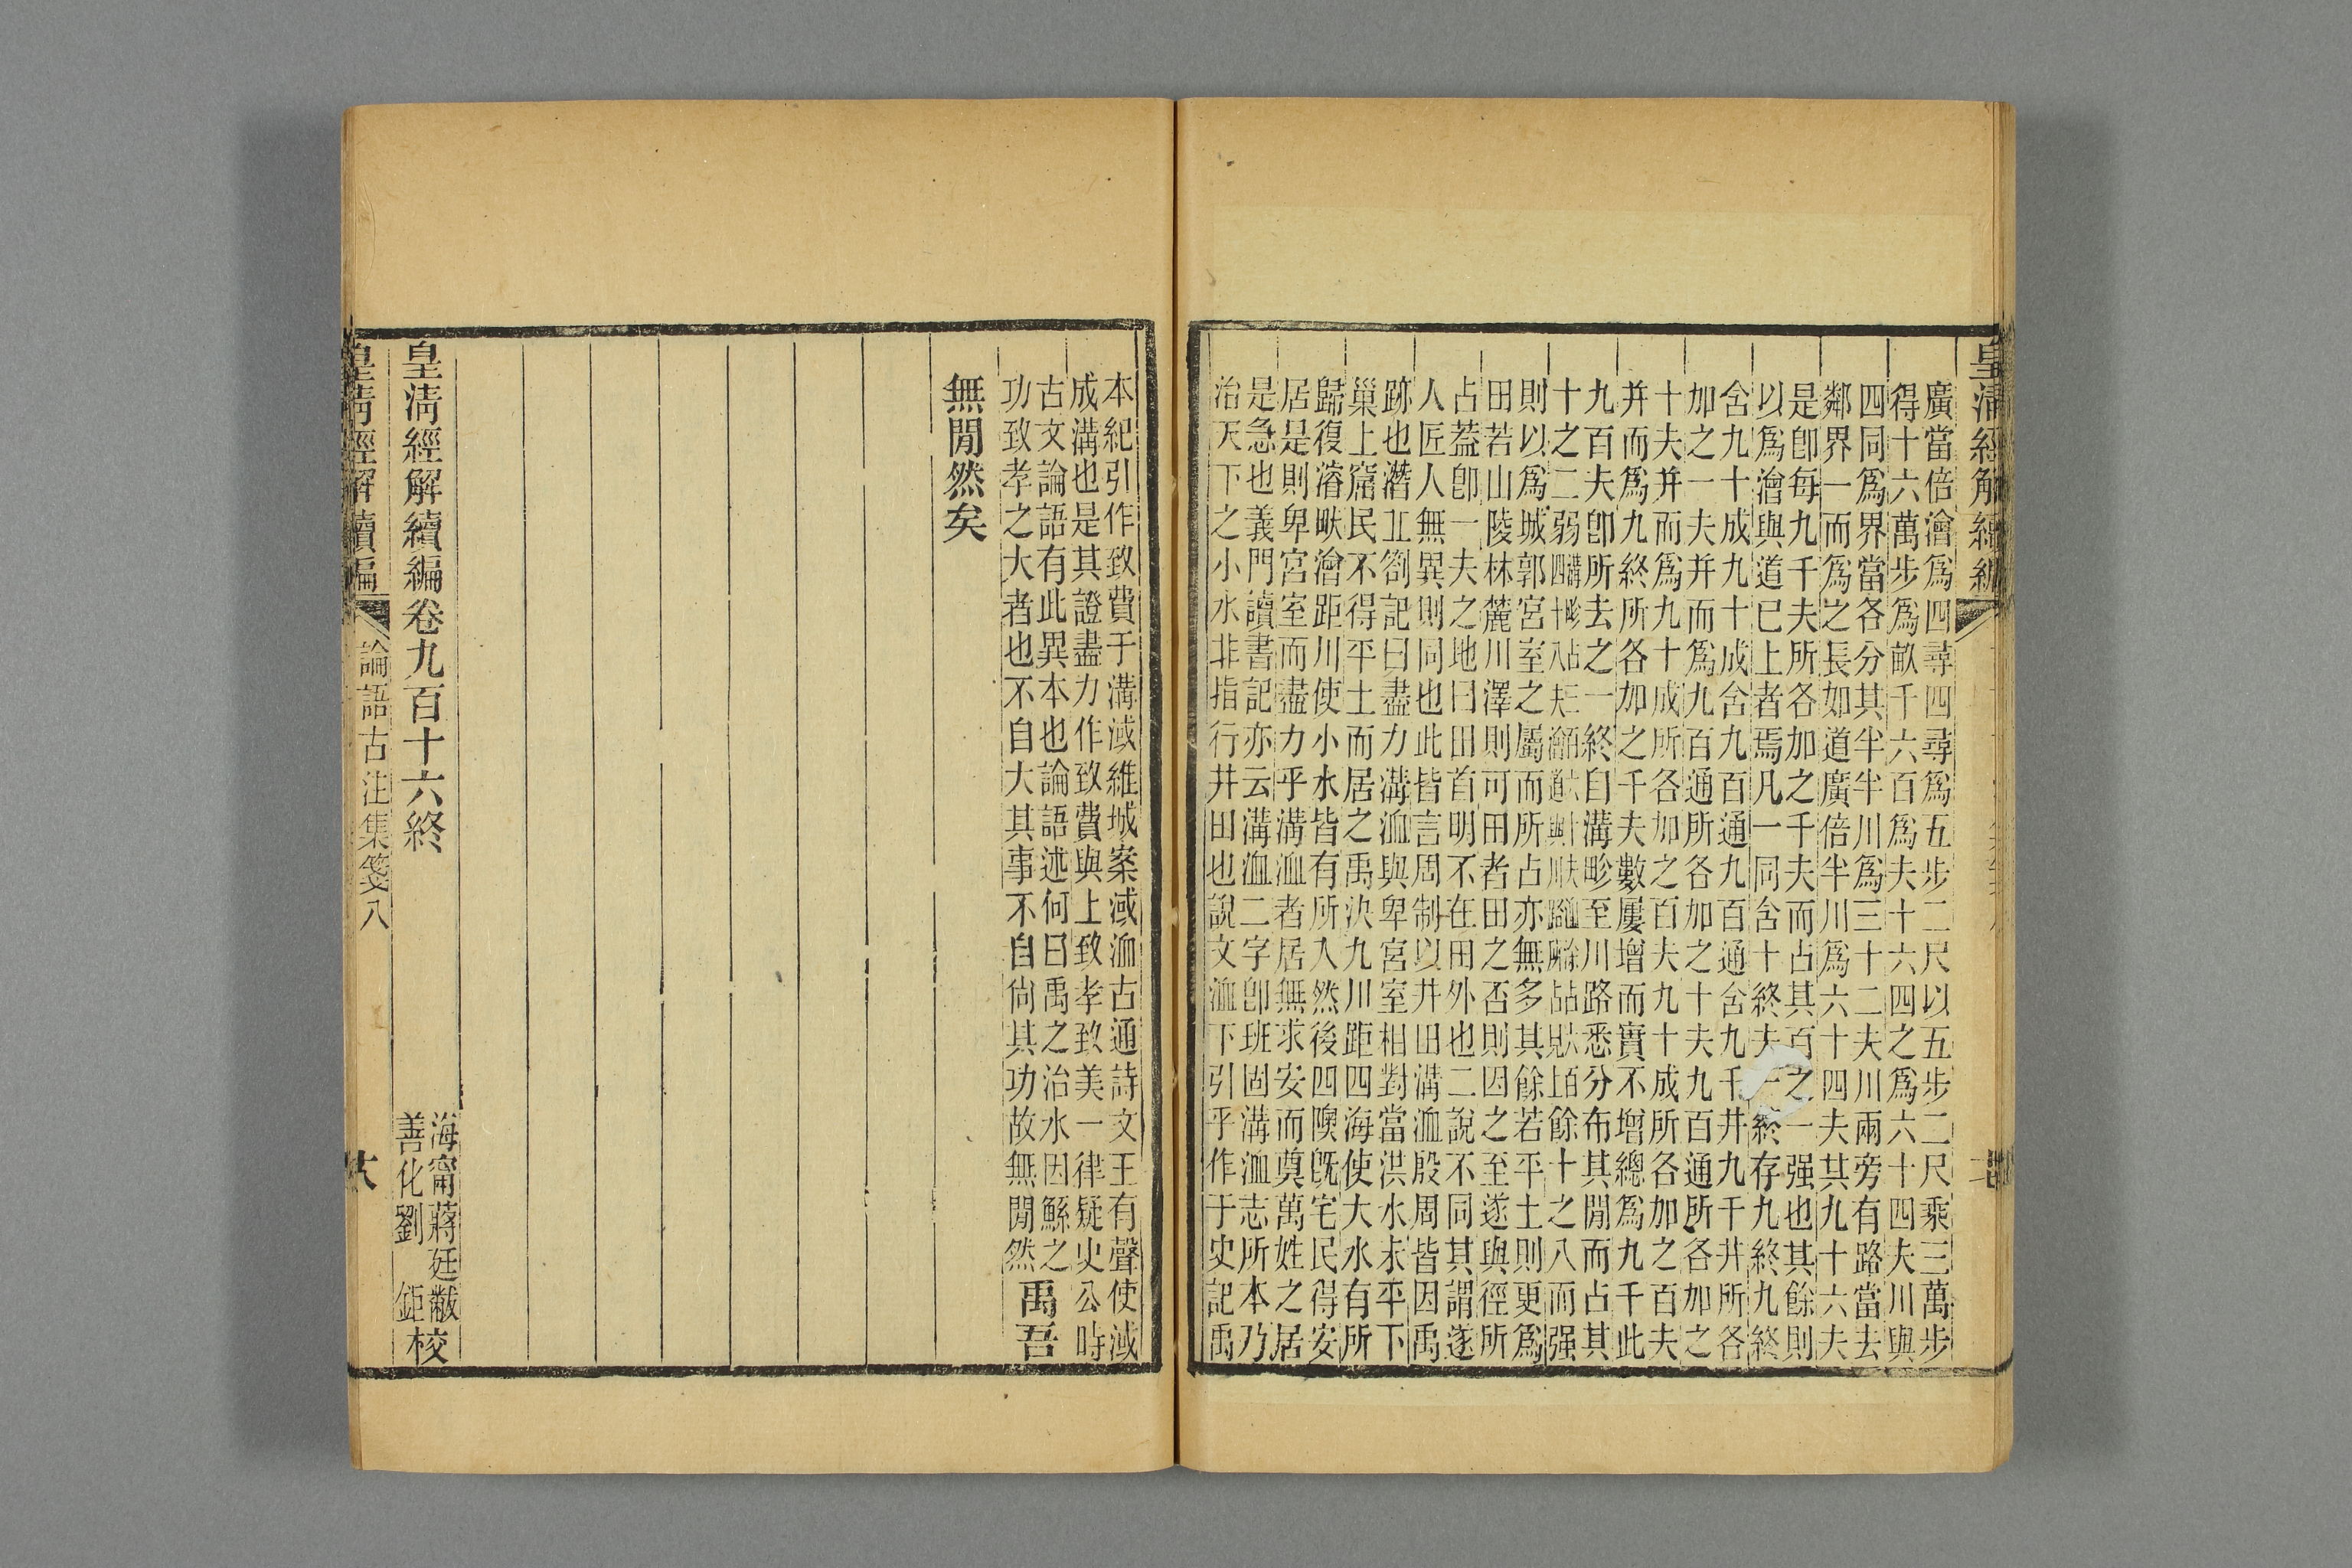 皇淸經解續編
廣當倍澮爲四尋四尋爲五步二尺以五步二尺乘三萬步
得十六萬步爲畝千六百爲夫十六四之爲六十四夫川與
四同爲界當各分其半半川爲三十二夫川兩旁有路當去
鄰界一而爲之長如道廣倍半川爲六十四夫其九十六夫
是卽每九千夫所各加之千夫而占其百之一强也其餘則
以爲澮與道已上者焉凡一同舍十終夫一終存九終九終
舍九十成九十成舍九百通九百通舍九千井九千井所各
加之一夫幷而爲九百通所各加之十夫九百通所各加之
十夫幷而爲九十成所各加之百夫九十成所各加之百夫
幷而爲九終所各加之千夫數屢增而實不增總爲九千此
九百夫卽所去之一終自溝畛至川路悉分布其閒而占其
十之二弱餘十之八而强
則以爲城郭宮室之屬而所占亦無多其餘若平土則更爲
田若山陵林麓川澤則可田者田之否則因之至遂與徑所
占蓋卽一夫之地曰田首明不在田外也二說不同其謂遂
人匠人無異則同也此皆言周制以井田溝洫殷周皆因禹
跡也潛丠劄記曰盡力溝洫與卑宮室相對當洪水未平下
巢上窟民不得平土而居之禹決九川距四海使大水有所
歸復濬畎澮距川使小水皆有所入然後四隩旣宅民得安
居是則卑宮室而盡力乎溝洫者居無求安而奠萬姓之居
是急也義門讀書記亦云溝洫二字卽班固溝洫志所本乃
治天下之小水非指行井田也說文洫下引乎作于史記禹
本紀引作致費于溝淢維城案淢洫古通詩文王有聲使淢
成溝也是其證盡力作致費與上致孝致美一律疑史公時
古文論語有此異本也論語述何曰禹之治水因鯀之
功致孝之大者也不自大其事不自尙其功故無閒然
禹吾
無閒然矣
皇淸經解續編卷九百十六終
海甯蔣廷黻
善化劉 鉅
校
皇淸經解續編
論語古注集箋八
大